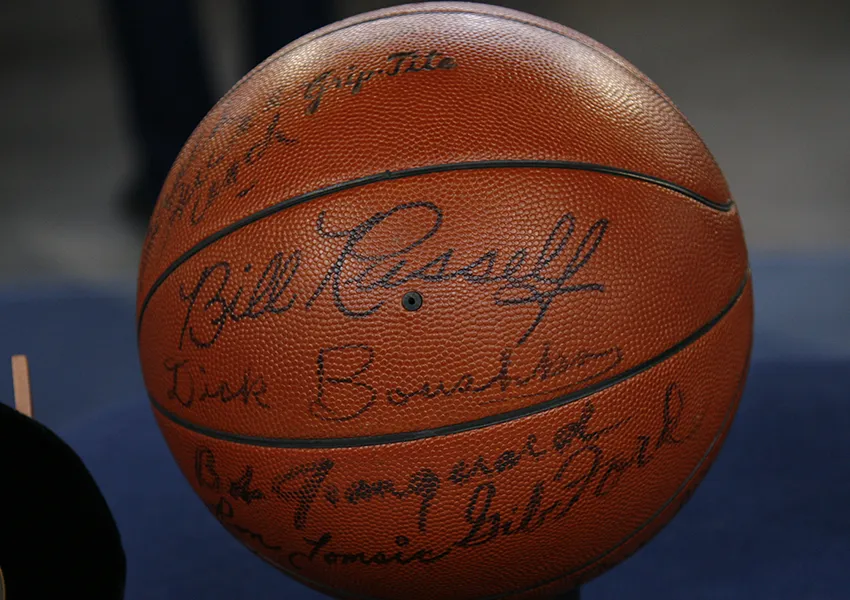 Grip-Tite
Coach
Bill Russell
Dick Boushka
Bob Jeangerard
Gib Ford
Ron Tomsic